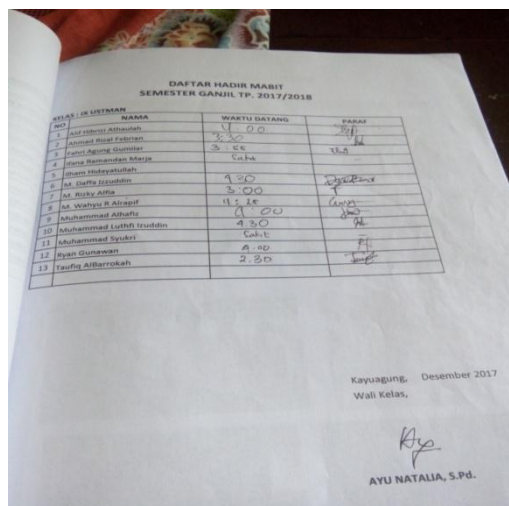 DAFTAR HADIR MABIT
SEMESTER GANJIL TP. 2017/2018
KELAS : IX USTMAN
NO NAMA WAKTU DATANG PARAF
1 Alif Hibrizi Athaulah 4 00
2 Ahmad Rizal Febrian 3.30
3 Fahri Agung Gumilar 3:55
4 Ifana Ramandan Marja Sakit
5 Ilham Hidayatullah
6 M. Daffa Izzuddin 4.20
7 M. Rizky Alfia 3:00
8 M. Wahyu R Alrapif 4:25
9 Muhammad Alhafiz 4:00
10 Muhammad Luthfi Izuddin 4.30
11 Muhammad Syukri Sakit
12 Ryan Gunawan 4.00
13 Taufiq AlBarrokah 2.30
Kayuagung, Desember 2017
Wali Kelas,
AYU NATALIA, S.Pd.